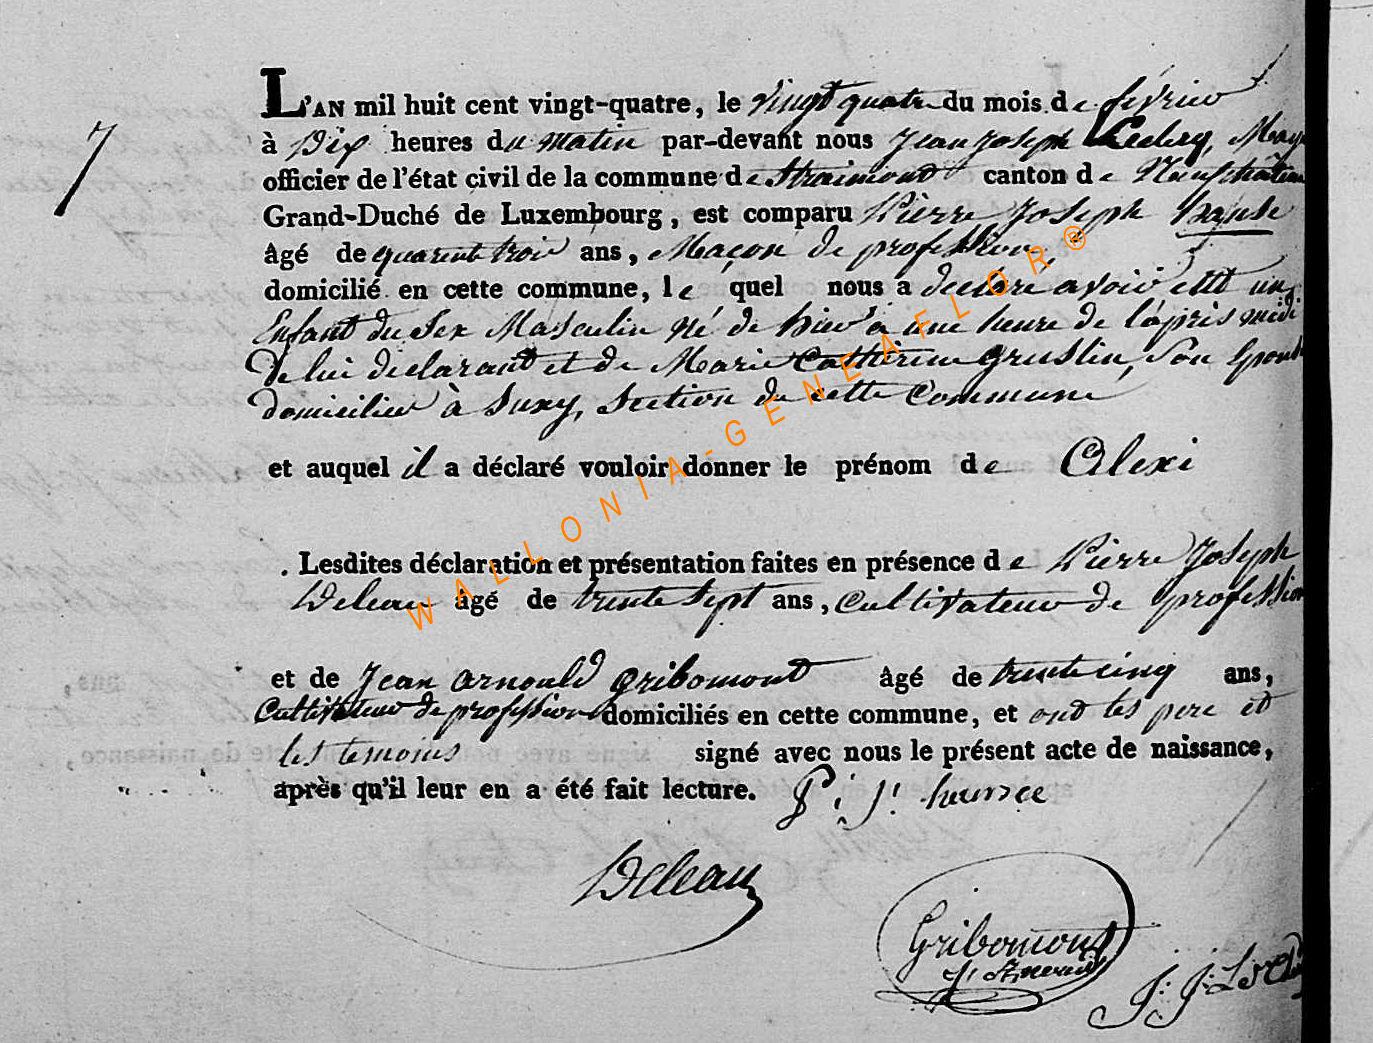 7
L'AN mil huit cent vingt-quatre, le vingt quatre du mois de février
à Dix heures du matin par-devant nous Jean Joseph Leclerq,
officier de l'état civil de la commune de Straimont canton de Neufchâteau
Grand-Duché de Luxembourg, est comparu Pierre Joseph
âgé de quarente trois ans, Maçon de profession,
domicilié en cette commune, le quel nous a declaré avoir été un
Enfant du Sex Masculin né de hier à une heure de l'après midi
De lui declarant et de Marie Catherine Gruslin, Son Epouse
domicilier à Suxy, Section de cette Commune
et auquel il a déclaré vouloir donner le prénom de Alexi
. Lesdites déclaration et présentation faites en présence de Pierre Joseph
Deleau âgé de trente sept ans, Cultivateur de profession
et de Jean Arnould Gribomont âgé de trente cinq ans,
Cultivateur de profession domiciliés en cette commune, et ont les pere et
les temoins signé avec nous le présent acte de naissance,
après qu'il leur en a été fait lecture. P: J:
Deleau
Gribomont
J:
J: J:
WALLONIA-GENEAFLOR®